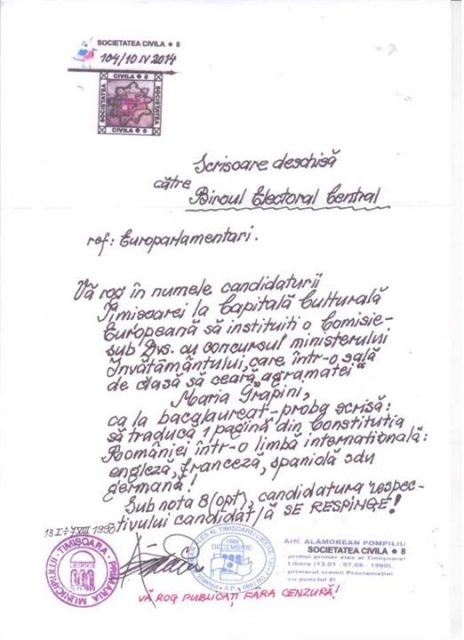 SOCIETATEA CIVILA ● 8
104/10 IV 2014
CIVILA ● 8
SOCIETATEA
SOCIETATEA
CIVILA ● 8
Scrisoare deschisă
către
Biroul Electoral Central
ref: Europarlamentari.
Vă rog în numele candidaturii
Timisoarei la Capitală Culturală
Europeană să instituiti o Comisie-
sub Dvs. cu concursul ministerului
Învătământului, care într-o sală
de clasă să ceară „agramatei"
Maria Grapini,
ca la bacalaureat-proba scrisă:
să traducă 1 pagină din Constitutia
României într-o limbă internatională:
engleză, franceză, spaniolă sau
germană!
Sub nota 8(opt), candidatura respec-
tivului candidat/ă SE RESPINGE!
TIMIŞOARA
PRIMARIA
MUNICIPIULUI
DECEMBRIE
Arh. ALAMOREAN POMPILIU
SOCIETATEA CIVILA ● 8
primul primar ales al Timişoarei
Libere (13.01 - 07.08 - 1990),
primarul vremii Proclamaţiei
cu punctul 8!
VĂ ROG PUBLICAŢI FĂRA CENZURĂ!